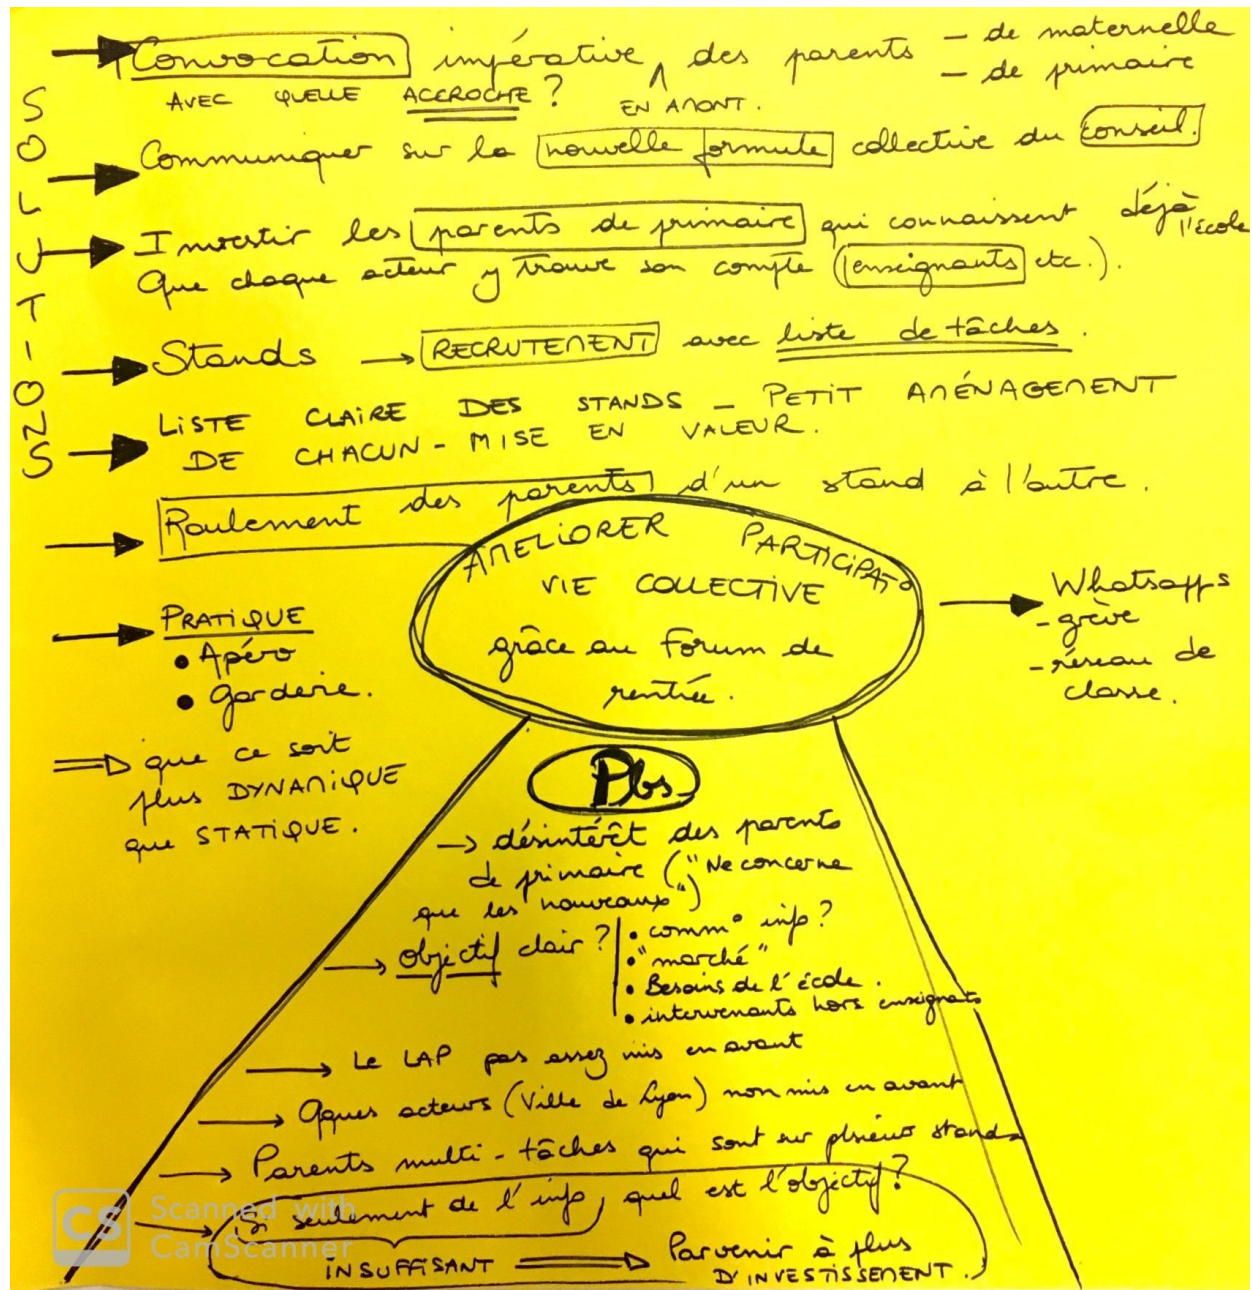 SOLUTIONS
Convocation impérative des parents - de maternelle
- de primaire
AVEC QUELLE ACCROCHE ? EN AMONT.
Communiquer sur la nouvelle formule collective du conseil.
Investir les parents de primaire qui connaissent déjà l'école
Que chaque acteur y trouve son compte (enseignants etc.).
Stands → RECRUTEMENT avec liste de tâches.
LISTE CLAIRE DES STANDS - PETIT AMÉNAGEMENT
DE CHACUN - MISE EN VALEUR.
Roulement des parents d'un stand à l'autre.
AMELIORER PARTICIPAT°
VIE COLLECTIVE
grâce au Forum de
rentrée.
PRATIQUE
• Apéro
• Garderie.
que ce soit
plus DYNAMIQUE
que STATIQUE.
Whatsapps
- grève
- réseau de
classe.
Pbs
→ désintérêt des parents
de primaire ("Ne concerne
que les nouveaux")
→ objectif clair ?
• comm° info ?
• "marché"
• Besoins de l'école.
• intervenants hors enseignats
→ Le LAP pas assez mis en avant
→ Qques acteurs (Ville de Lyon) non mis en avant
→ Parents multi-tâches qui sont sur plsieurs stands
→ Si seulement de l'info, quel est l'objectif ?
INSUFFISANT ⇒ Parvenir à plus
D'INVESTISSEMENT.
CS Scanned with
CamScanner